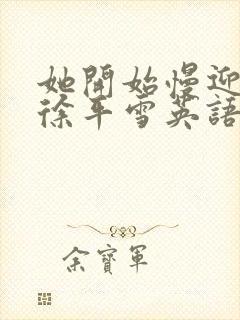 她開始慢迎
徐平雪英語
余寶軍